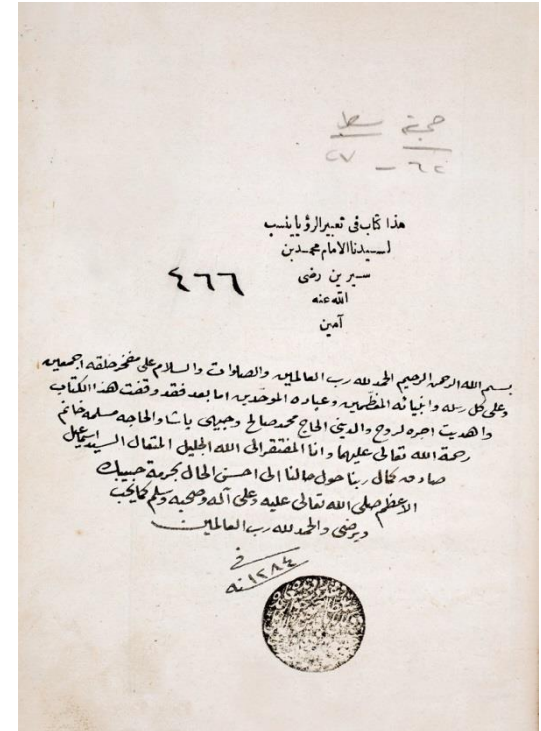 صحيفة سطر
٢٧ - ٦٢
هذا كتاب فى تعبير الرؤيا ينسب
لسيدنا الامام محمد بن
سيرين رضى
الله عنه
آمين
٤٦٦
بسم الله الرحمن الرحيم الحمد لله رب العالمين والصلوات والسلام على مفخر خلقه اجمعين
وعلى كل رسله وانبيائه المفظمين وعباده الموحدين اما بعد فقد وقفت هذا الكتاب
واهديت اجره لروح والديتى الحاج محمد صالح وجيهى پاشا والحاجه مسلمه خانم
رحمة الله تعالى عليهما وانا المفتقر الى الله الجليل المتعال السيد اسمعيل
صادق كمال ربنا حول حالنا الى احسن الحال بحرمة حبيبك
الاعظم صلى الله تعالى عليه وعلى آله وصحبه وسلم كما يحب
ويرضى والحمد لله رب العالمين
فى
١٢٨٤ نه